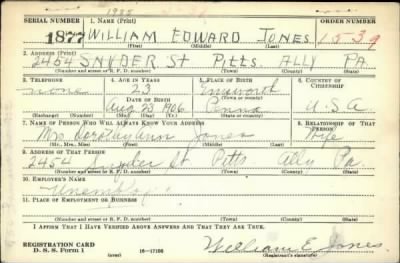 1935
SERIAL NUMBER 1. NAME (Print)
1877 WILLIAM EDWARD JONES 1539
(First) (Middle) (Last)
2. ADDRESS (Print)
2454 SNYDER St Pitts. ALLY PA
(Number and street or R. F. D. number) (Town) (County) (State)
3. TELEPHONE 4. AGE IN YEARS 5. PLACE OF BIRTH 6. COUNTRY OF CITIZENSHIP
none 23 Emsworth
DATE OF BIRTH (Town or county)
Aug 23 1906 Penna U.S.A
(Exchange) (Number) (Mo.) (Day) (Yr.) (State or country)
7. NAME OF PERSON WHO WILL ALWAYS KNOW YOUR ADDRESS 8. RELATIONSHIP OF THAT PERSON
Mrs Dorothy Ann Jones Wife
(Mr., Mrs., Miss) (First) (Middle) (Last)
9. ADDRESS OF THAT PERSON
2454 Snyder St Pitts Ally Pa
(Number and street or R. F. D. number) (Town) (County) (State)
10. EMPLOYER'S NAME
11. PLACE OF EMPLOYMENT OR BUSINESS
(Number and street or R. F. D. number) (Town) (County) (State)
I AFFIRM THAT I HAVE VERIFIED ABOVE ANSWERS AND THAT THEY ARE TRUE.
REGISTRATION CARD
D. S. S. Form 1 (over) William E Jones
(Registrant's signature)